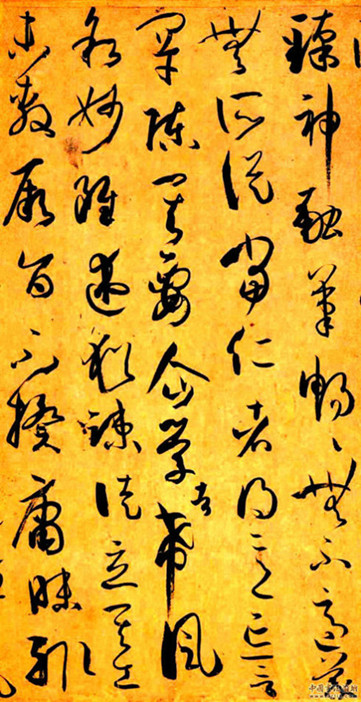 臻神融筆暢〻無不適蒙
無所從當仁者得意忘言
罕陳其要企學者希風
敘妙雖述猶疎徒立其工
未敷厥旨不揆庸昧輒